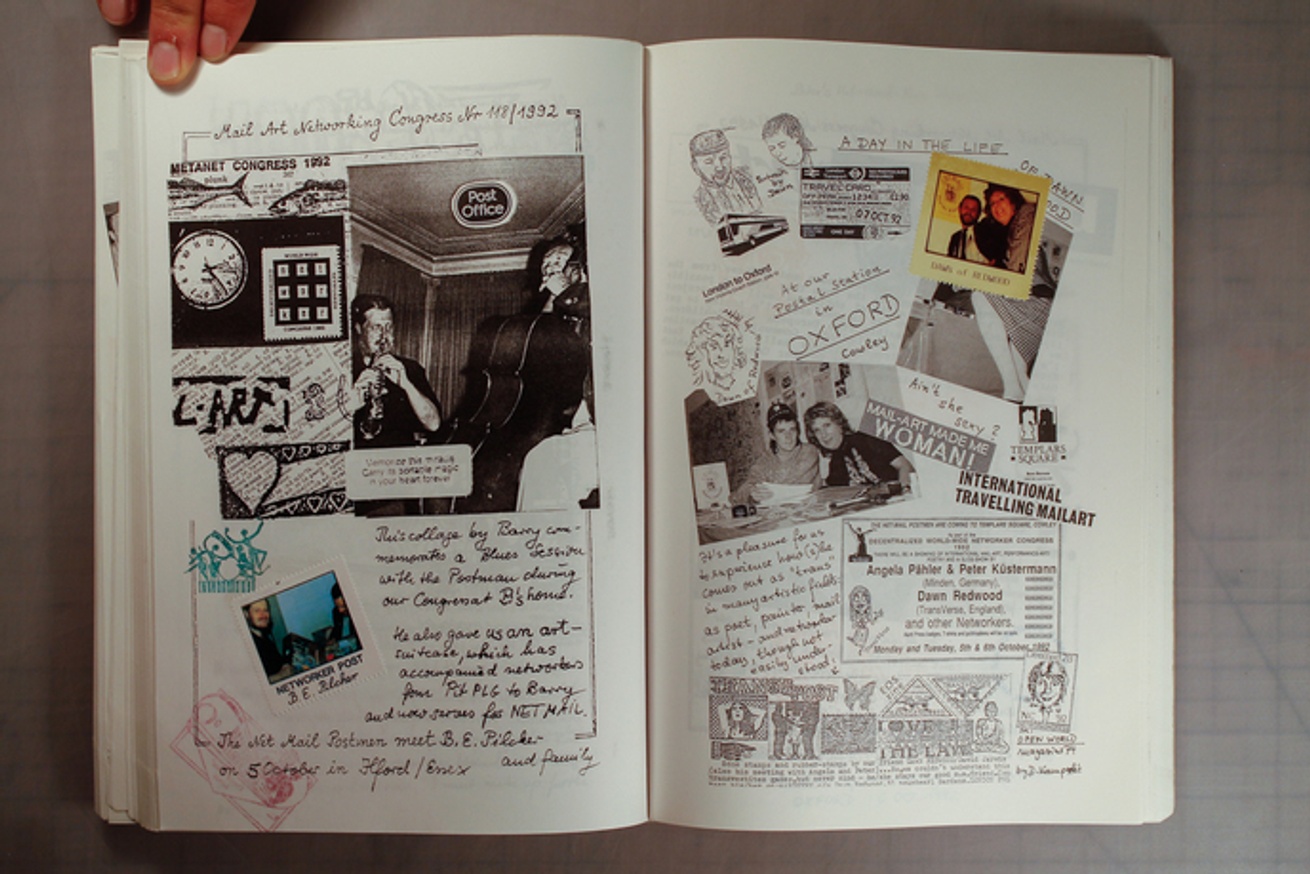 Mail Art Networking Congress Nr 118/1992
METANET CONGRESS 1992
plunk
WORLD WIDE
CONGRESS 1992
L-ART
Post
Office
Memorize this miracle
Carry its portable magic
in your heart forever
This collage by Barry com-
memorates a Blues Session
with the Postman during
our Congress at B's home.
He also gave us an art-
suitcase, which has
accompanied networkers
from Pit PLG to Barry
and now serves for NET MAIL.
NETWORKER POST
B.E. Pilcher
The Net Mail Postmen meet B.E. Pilcher
and family
on 5 October in Ilford / Essex
A DAY IN THE LIFE
OF DAWN
by
Dawn
TRAVELCARD
OFF-PEAK
07 OCT 92
ONE DAY
DAWN of REDWOOD
London to Oxford
At our
Postal Station
in
OXFORD
Cowley
Dawn of Redwood
Ain't she
sexy?
MAIL-ART MADE ME
WOMAN!
TEMPLARS
SQUARE
INTERNATIONAL
TRAVELLING MAILART
It's a pleasure for us
to experience how (s)he
comes out as "trans"
in many artistic fields:
as poet, painter, mail
artist - and networker
today, though not
easily under-
stood!
THE NET MAIL POSTMEN ARE COMING TO TEMPLARS SQUARE, COWLEY
As part of the
DECENTRALIZED WORLD-WIDE NETWORKER CONGRESS
1992
THERE WILL BE A SHOWING OF INTERNATIONAL MAIL ART, PERFORMANCE ART
Angela Pähler & Peter Küstermann
(Minden, Germany),
Dawn Redwood
(TransVerse, England),
and other Networkers.
Monday and Tuesday, 5th & 6th October 1992
LOVE IS
THE LAW
OPEN WORLD
Some stamps and rubber-stamps by our friend